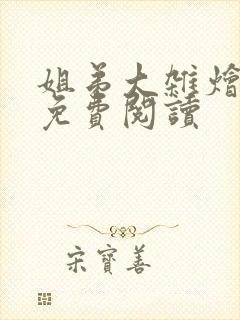 姐弟大雜燴
免費閱讀
宋寶善